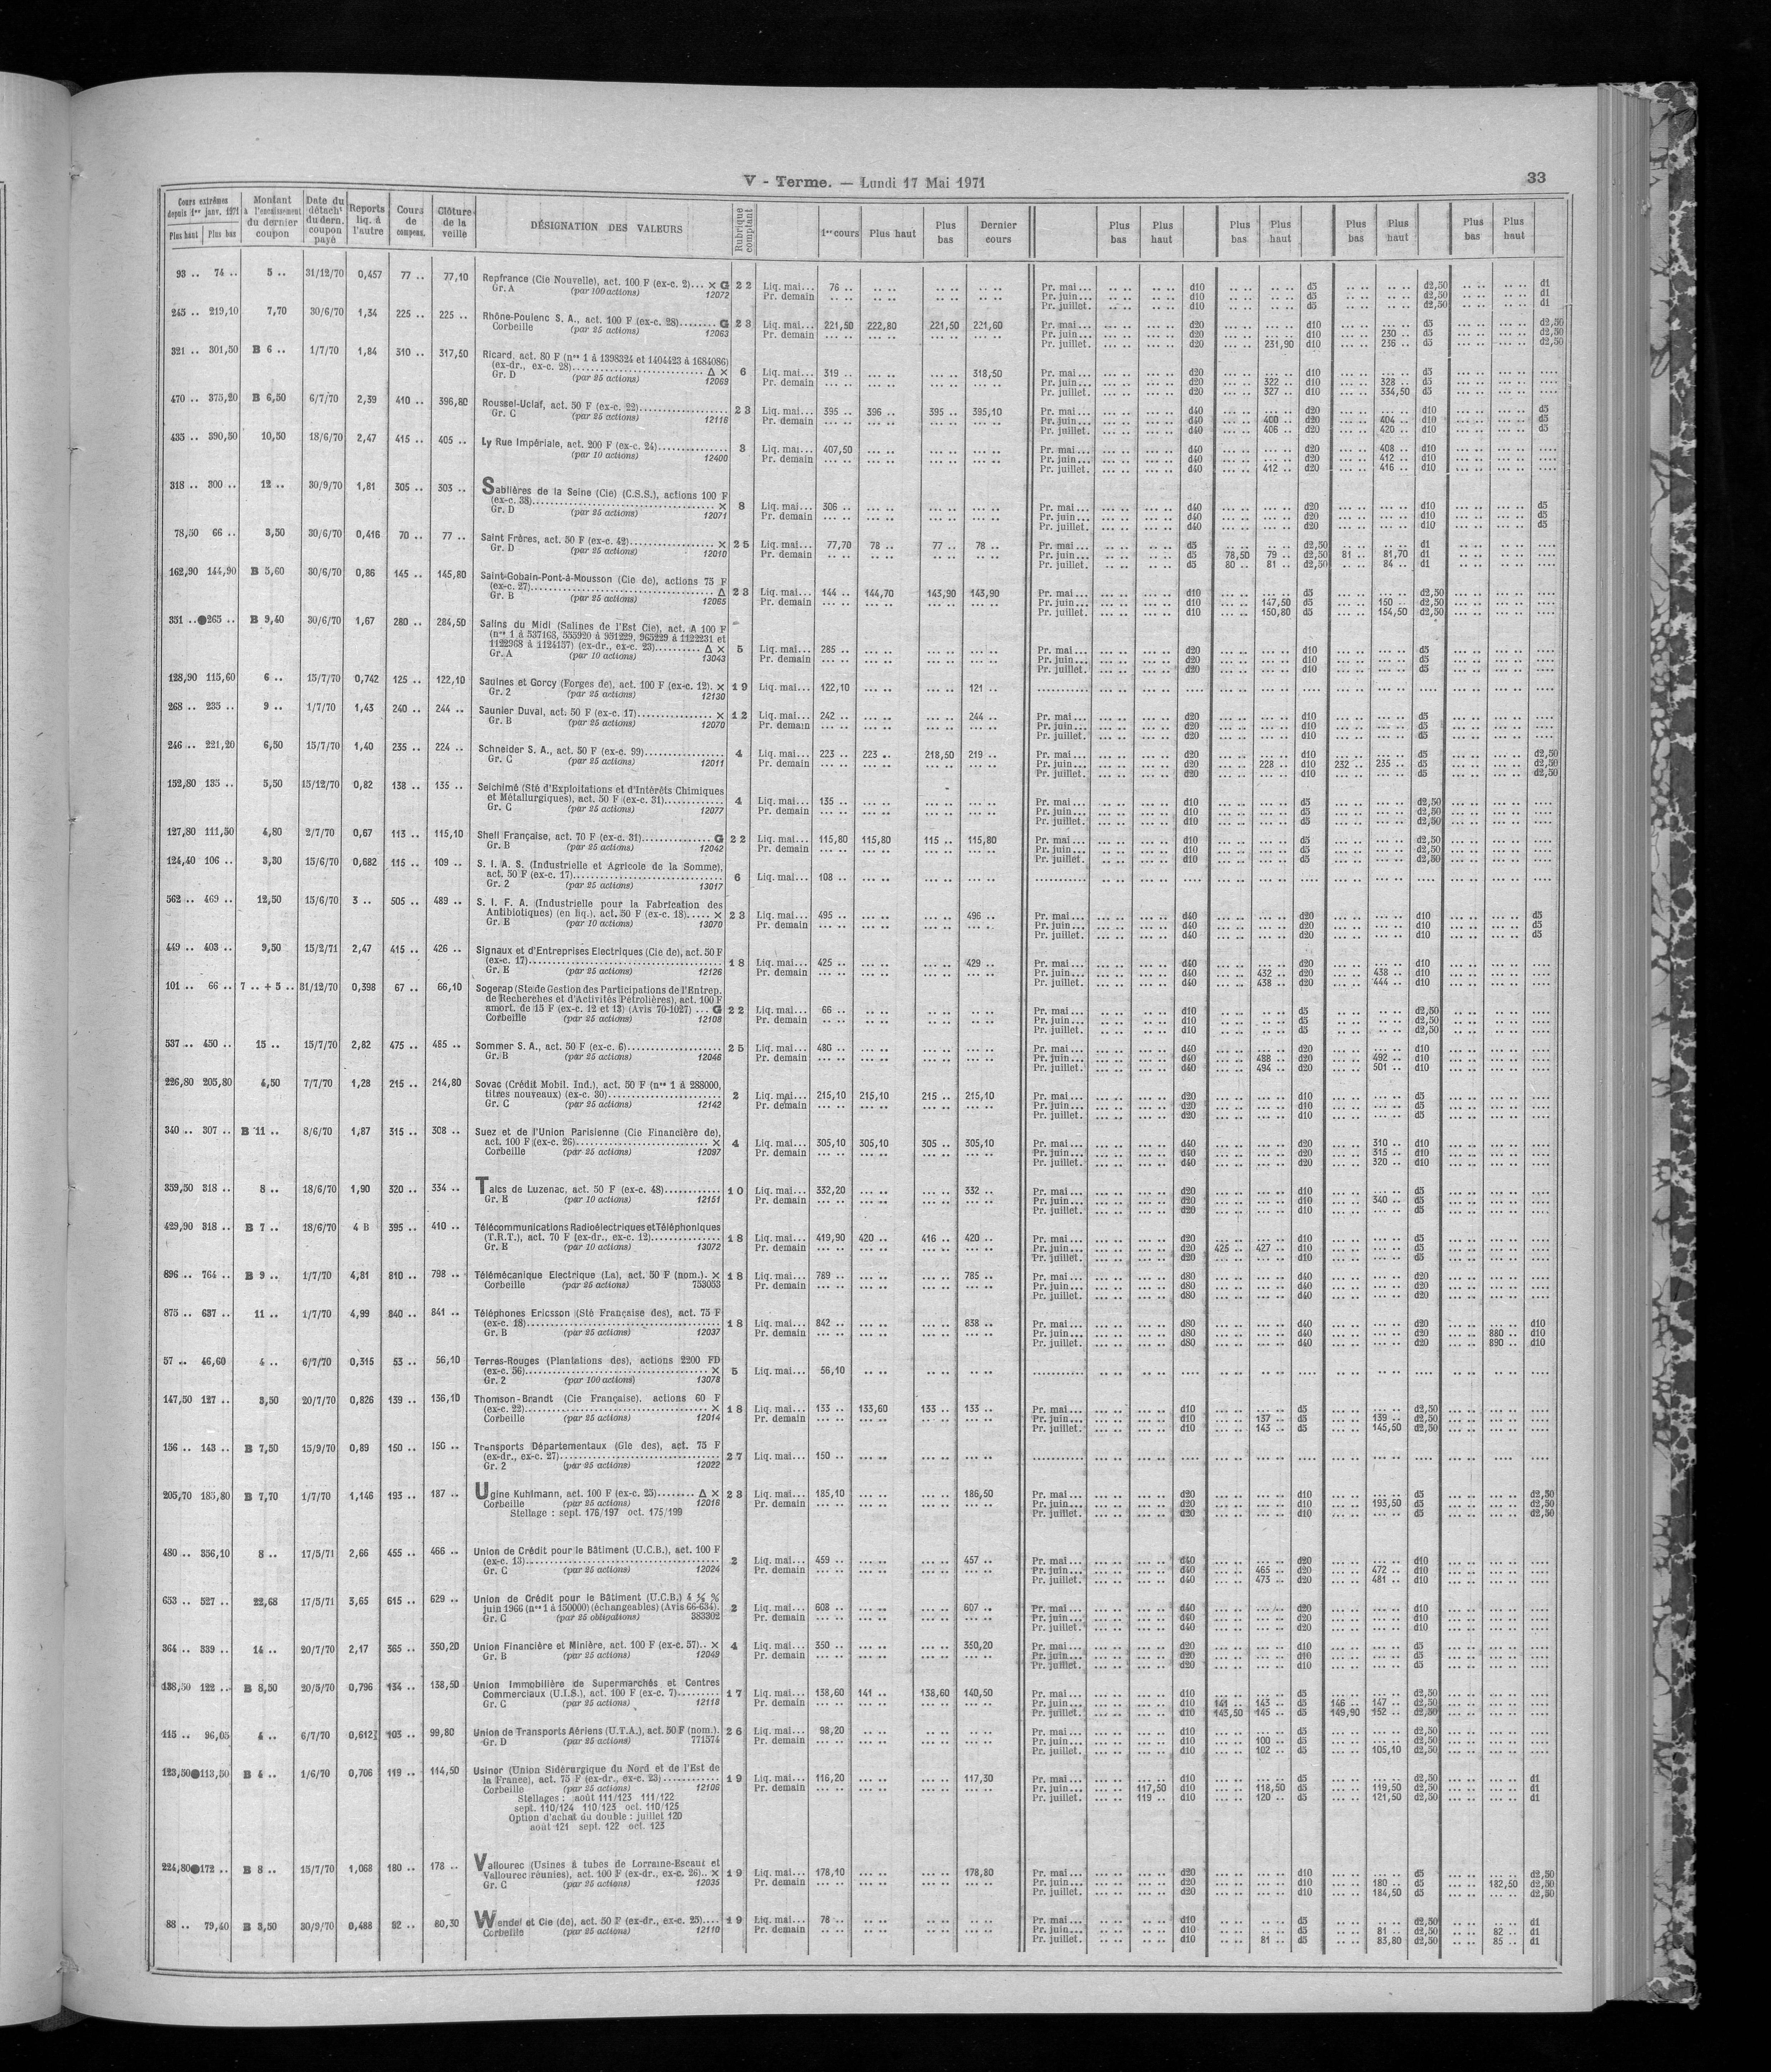 V - Terme. — Lundi 17 Mai 1971
33
Cours extrêmes depuis 1er janv. 1971 Plus haut Plus bas | Montant à l'encaissement du dernier coupon | Date du détacht du dern. coupon payé | Reports liq. à l'autre | Cours de compens. | Clôture de la veille | DÉSIGNATION DES VALEURS | Rubrique comptant | 1er cours | Plus haut | Plus bas | Dernier cours | Plus bas | Plus haut | Plus bas | Plus haut | Plus bas | Plus haut | Plus bas | Plus haut
93 .. 74 .. 5 .. 31/12/70 0,457 77 .. 77,10 Repfrance (Cie Nouvelle), act. 100 F (ex-c. 2)... × G 22 Liq. mai... 76 .. Pr. mai... d10 d5 d2,50 d1
Gr. A (par 100 actions) 12072 Pr. demain Pr. juin... d10 d5 d2,50 d1
Pr. juillet. d10 d5 d2,50 d1
245 .. 219,10 7,70 30/6/70 1,34 225 .. 225 .. Rhône-Poulenc S. A., act. 100 F (ex-c. 28)........ G 23 Liq. mai... 221,50 222,80 221,50 221,60 Pr. mai... d20 d10 d5 d2,50
Corbeille (par 25 actions) 12063 Pr. demain Pr. juin... d20 d10 230 .. d5 d2,50
Pr. juillet. d20 231,90 d10 236 .. d5 d2,50
321 .. 301,50 B 6 .. 1/7/70 1,84 310 .. 317,50 Ricard, act. 80 F (nos 1 à 1398324 et 1404423 à 1684086)
(ex-dr., ex-c. 28)........ Δ × 6 Liq. mai... 319 .. 318,50 Pr. mai... d20 d10 d5
Gr. D (par 25 actions) 12069 Pr. demain Pr. juin... d20 322 .. d10 328 .. d5
Pr. juillet. d20 327 .. d10 334,50 d5
470 .. 375,20 B 6,50 6/7/70 2,39 410 .. 396,80 Roussel-Uclaf, act. 50 F (ex-c. 22)........ 23 Liq. mai... 395 .. 396 .. 395 .. 395,10 Pr. mai... d40 d20 d10 d5
Gr. C (par 25 actions) 12116 Pr. demain Pr. juin... d40 400 .. d20 404 .. d10 d5
Pr. juillet. d40 406 .. d20 420 .. d10 d5
435 .. 390,50 10,50 18/6/70 2,47 415 .. 405 .. Ly Rue Impériale, act. 200 F (ex-c. 24)........ 3 Liq. mai... 407,50 Pr. mai... d40 d20 408 .. d10
(par 10 actions) 12400 Pr. demain Pr. juin... d40 d20 412 .. d10
Pr. juillet. d40 412 .. d20 416 .. d10
318 .. 300 .. 12 .. 30/9/70 1,81 305 .. 303 .. Sablières de la Seine (Cie) (C.S.S.), actions 100 F
(ex-c. 38)........ × 8 Liq. mai... 306 .. Pr. mai... d40 d20 d10 d5
Gr. D (par 25 actions) 12071 Pr. demain Pr. juin... d40 d20 d10 d5
Pr. juillet. d40 d20 d10 d5
78,50 66 .. 3,50 30/6/70 0,416 70 .. 77 .. Saint Frères, act. 50 F (ex-c. 42)........ × 25 Liq. mai... 77,70 78 .. 77 .. 78 .. Pr. mai... d5 d2,50 d1
Gr. D (par 25 actions) 12010 Pr. demain Pr. juin... d5 78,50 79 .. d2,50 81 .. 81,70 d1
Pr. juillet. d5 80 .. 81 .. d2,50 84 .. d1
162,90 144,90 B 5,60 30/6/70 0,86 145 .. 145,80 Saint-Gobain-Pont-à-Mousson (Cie de), actions 75 F
(ex-c. 27)........ Δ 23 Liq. mai... 144 .. 144,70 143,90 143,90 Pr. mai... d10 d5 d2,50
Gr. B (par 25 actions) 12065 Pr. demain Pr. juin... d10 147,50 d5 150 .. d2,50
Pr. juillet. d10 150,80 d5 154,50 d2,50
351 ..●265 .. B 9,40 30/6/70 1,67 280 .. 284,50 Salins du Midi (Salines de l'Est Cie), act. A 100 F
(nos 1 à 537168, 555920 à 951229, 965229 à 1122231 et
1122968 à 1124157) (ex-dr., ex-c. 23)........ Δ × 5 Liq. mai... 285 .. Pr. mai... d20 d10 d5
Gr. A (par 10 actions) 13043 Pr. demain Pr. juin... d20 d10 d5
Pr. juillet. d20 d10 d5
128,90 115,60 6 .. 15/7/70 0,742 125 .. 122,10 Saulnes et Gorcy (Forges de), act. 100 F (ex-c. 12). × 19 Liq. mai... 122,10 121 ..
Gr. 2 (par 25 actions) 12130
268 .. 235 .. 9 .. 1/7/70 1,43 240 .. 244 .. Saunier Duval, act. 50 F (ex-c. 17)........ × 12 Liq. mai... 242 .. 244 .. Pr. mai... d20 d10 d5
Gr. B (par 25 actions) 12070 Pr. demain Pr. juin... d20 d10 d5
Pr. juillet. d20 d10 d5
246 .. 221,20 6,50 15/7/70 1,40 235 .. 224 .. Schneider S. A., act. 50 F (ex-c. 99)........ 4 Liq. mai... 223 .. 223 .. 218,50 219 .. Pr. mai... d20 d10 d5 d2,50
Gr. C (par 25 actions) 12011 Pr. demain Pr. juin... d20 228 .. d10 232 .. 235 .. d5 d2,50
Pr. juillet. d20 d10 d5 d2,50
152,80 135 .. 5,50 15/12/70 0,82 138 .. 135 .. Seichimé (Sté d'Exploitations et d'Intérêts Chimiques
et Métallurgiques), act. 50 F (ex-c. 31)........ 4 Liq. mai... 135 .. Pr. mai... d10 d5 d2,50
Gr. C (par 25 actions) 12077 Pr. demain Pr. juin... d10 d5 d2,50
Pr. juillet. d10 d5 d2,50
127,80 111,50 4,80 2/7/70 0,67 113 .. 115,10 Shell Française, act. 70 F (ex-c. 31)........ G 22 Liq. mai... 115,80 115,80 115 .. 115,80 Pr. mai... d10 d5 d2,50
Gr. B (par 25 actions) 12042 Pr. demain Pr. juin... d10 d5 d2,50
Pr. juillet. d10 d5 d2,50
124,40 106 .. 3,30 15/6/70 0,682 115 .. 109 .. S. I. A. S. (Industrielle et Agricole de la Somme),
act. 50 F (ex-c. 17)........ 6 Liq. mai... 108 ..
Gr. 2 (par 25 actions) 13017
562 .. 469 .. 12,50 15/6/70 3 .. 505 .. 489 .. S. I. F. A. (Industrielle pour la Fabrication des
Antibiotiques) (en liq.), act. 50 F (ex-c. 18)..... × 23 Liq. mai... 495 .. 496 .. Pr. mai... d40 d20 d10 d5
Gr. E (par 10 actions) 13070 Pr. demain Pr. juin... d40 d20 d10 d5
Pr. juillet. d40 d20 d10 d5
449 .. 403 .. 9,50 15/2/71 2,47 415 .. 426 .. Signaux et d'Entreprises Electriques (Cie de), act. 50 F
(ex-c. 17)........ 18 Liq. mai... 425 .. 429 .. Pr. mai... d40 d20 d10
Gr. E (par 25 actions) 12126 Pr. demain Pr. juin... d40 432 .. d20 438 .. d10
Pr. juillet. d40 438 .. d20 444 .. d10
101 .. 66 .. 7 .. + 5 .. 31/12/70 0,398 67 .. 66,10 Sogerap (Sté de Gestion des Participations de l'Entrep.
de Recherches et d'Activités Pétrolières), act. 100 F
amort. de 15 F (ex-c. 12 et 13) (Avis 70-1027) ... G 22 Liq. mai... 66 .. Pr. mai... d10 d5 d2,50
Corbeille (par 25 actions) 12108 Pr. demain Pr. juin... d10 d5 d2,50
Pr. juillet. d10 d5 d2,50
537 .. 450 .. 15 .. 15/7/70 2,82 475 .. 485 .. Sommer S. A., act. 50 F (ex-c. 6)........ 25 Liq. mai... 480 .. Pr. mai... d40 d20 d10
Gr. B (par 25 actions) 12046 Pr. demain Pr. juin... d40 488 .. d20 492 .. d10
Pr. juillet. d40 494 .. d20 501 .. d10
226,80 205,80 4,50 7/7/70 1,28 215 .. 214,80 Sovac (Crédit Mobil. Ind.), act. 50 F (nos 1 à 288000,
titres nouveaux) (ex-c. 30)........ 2 Liq. mai... 215,10 215,10 215 .. 215,10 Pr. mai... d20 d10 d5
Gr. C (par 25 actions) 12142 Pr. demain Pr. juin... d20 d10 d5
Pr. juillet. d20 d10 d5
340 .. 307 .. B 11 .. 8/6/70 1,87 315 .. 308 .. Suez et de l'Union Parisienne (Cie Financière de),
act. 100 F (ex-c. 26)........ × 4 Liq. mai... 305,10 305,10 305 .. 305,10 Pr. mai... d40 d20 310 .. d10
Corbeille (par 25 actions) 12097 Pr. demain Pr. juin... d40 d20 315 .. d10
Pr. juillet. d40 d20 320 .. d10
359,50 318 .. 8 .. 18/6/70 1,90 320 .. 334 .. Talcs de Luzenac, act. 50 F (ex-c. 48)........ 10 Liq. mai... 332,20 332 .. Pr. mai... d20 d10 d5
Gr. B (par 10 actions) 12151 Pr. demain Pr. juin... d20 d10 340 .. d5
Pr. juillet. d20 d10 d5
429,90 318 .. B 7 .. 18/6/70 4 B 395 .. 410 .. Télécommunications Radioélectriques et Téléphoniques
(T.R.T.), act. 70 F (ex-dr., ex-c. 12)........ 18 Liq. mai... 419,90 420 .. 416 .. 420 .. Pr. mai... d20 d10 d5
Gr. E (par 10 actions) 13072 Pr. demain Pr. juin... d20 425 .. 427 .. d10 d5
Pr. juillet. d20 d10 d5
896 .. 764 .. B 9 .. 1/7/70 4,81 810 .. 798 .. Télémécanique Electrique (La), act. 50 F (nom.). × 18 Liq. mai... 789 .. 785 .. Pr. mai... d80 d40 d20
Corbeille (par 25 actions) 753053 Pr. demain Pr. juin... d80 d40 d20
Pr. juillet. d80 d40 d20
875 .. 637 .. 11 .. 1/7/70 4,99 840 .. 841 .. Téléphones Ericsson (Sté Française des), act. 75 F
(ex-c. 18)........ 18 Liq. mai... 842 .. 838 .. Pr. mai... d80 d40 d20 d10
Gr. B (par 25 actions) 12037 Pr. demain Pr. juin... d80 d40 d20 880 .. d10
Pr. juillet. d80 d40 d20 890 .. d10
57 .. 46,60 4 .. 6/7/70 0,315 53 .. 56,10 Terres-Rouges (Plantations des), actions 2200 FD
(ex-c. 56)........ × 5 Liq. mai... 56,10
Gr. 2 (par 100 actions) 13078
147,50 127 .. 3,50 20/7/70 0,826 139 .. 136,10 Thomson-Brandt (Cie Française). actions 60 F
(ex-c. 22)........ × 18 Liq. mai... 133 .. 133,60 133 .. 133 .. Pr. mai... d10 d5 d2,50
Corbeille (par 25 actions) 12014 Pr. demain Pr. juin... d10 137 .. d5 139 .. d2,50
Pr. juillet. d10 143 .. d5 145,50 d2,50
156 .. 143 .. B 7,50 15/9/70 0,89 150 .. 150 .. Transports Départementaux (Gle des), act. 75 F
(ex-dr., ex-c. 27)........ 27 Liq. mai... 150 ..
Gr. 2 (par 25 actions) 12022
205,70 183,80 B 7,70 1/7/70 1,146 193 .. 187 .. Ugine Kuhlmann, act. 100 F (ex-c. 25)........ Δ × 23 Liq. mai... 185,10 186,50 Pr. mai... d20 d10 d5 d2,50
Corbeille (par 25 actions) 12016 Pr. demain Pr. juin... d20 d10 193,50 d5 d2,50
Stellage : sept. 176/197 oct. 175/199 Pr. juillet. d20 d10 d5 d2,50
480 .. 356,10 8 .. 17/5/71 2,66 455 .. 466 .. Union de Crédit pour le Bâtiment (U.C.B.), act. 100 F
(ex-c. 13)........ 2 Liq. mai... 459 .. 457 .. Pr. mai... d40 d20 d10
Gr. C (par 25 actions) 12024 Pr. demain Pr. juin... d40 465 .. d20 472 .. d10
Pr. juillet. d40 473 .. d20 481 .. d10
653 .. 527 .. 22,68 17/5/71 3,65 615 .. 629 .. Union de Crédit pour le Bâtiment (U.C.B.) 4 ½ %
juin 1966 (nos 1 à 150000) (échangeables) (Avis 66-634). 2 Liq. mai... 608 .. 607 .. Pr. mai... d40 d20 d10
Gr. C (par 25 obligations) 383302 Pr. demain Pr. juin... d40 d20 d10
Pr. juillet. d40 d20 d10
364 .. 339 .. 14 .. 20/7/70 2,17 365 .. 350,20 Union Financière et Minière, act. 100 F (ex-c. 57).. × 4 Liq. mai... 350 .. 350,20 Pr. mai... d20 d10 d5
Gr. B (par 25 actions) 12049 Pr. demain Pr. juin... d20 d10 d5
Pr. juillet. d20 d10 d5
138,50 122 .. B 8,50 20/5/70 0,796 134 .. 138,50 Union Immobilière de Supermarchés et Centres
Commerciaux (U.I.S.), act. 100 F (ex-c. 7)........ 17 Liq. mai... 138,60 141 .. 138,60 140,50 Pr. mai... d10 d5 d2,50
Gr. C (par 25 actions) 12118 Pr. demain Pr. juin... d10 141 .. 143 .. d5 146 .. 147 .. d2,50
Pr. juillet. d10 143,50 145 .. d5 149,90 152 .. d2,50
115 .. 96,05 4 .. 6/7/70 0,612 103 .. 99,80 Union de Transports Aériens (U.T.A.), act. 50 F (nom.). 26 Liq. mai... 98,20 Pr. mai... d10 d5 d2,50
Gr. D (par 25 actions) 771574 Pr. demain Pr. juin... d10 100 .. d5 d2,50
Pr. juillet. d10 102 .. d5 105,10 d2,50
123,50●113,50 B 4 .. 1/6/70 0,706 119 .. 114,50 Usinor (Union Sidérurgique du Nord et de l'Est de
la France), act. 75 F (ex-dr., ex-c. 23)........ 19 Liq. mai... 116,20 117,30 Pr. mai... d10 d5 d2,50 d1
Corbeille (par 25 actions) 12106 Pr. demain Pr. juin... 117,50 d10 118,50 d5 119,50 d2,50 d1
Stellages : août 111/123 111/122 Pr. juillet. 119 .. d10 120 .. d5 121,50 d2,50 d1
sept. 110/124 110/123 oct. 110/125
Option d'achat du double : juillet 120
août 121 sept. 122 oct. 123
224,80●172 .. B 8 .. 15/7/70 1,068 180 .. 178 .. Vallourec (Usines à tubes de Lorraine-Escaut et
Vallourec réunies), act. 100 F (ex-dr., ex-c. 26).. × 19 Liq. mai... 178,10 178,80 Pr. mai... d20 d10 d5 d2,50
Gr. C (par 25 actions) 12035 Pr. demain Pr. juin... d20 d10 180 .. d5 182,50 d2,50
Pr. juillet. d20 d10 184,50 d5 d2,50
88 .. 79,40 B 3,50 30/9/70 0,488 82 .. 80,30 Wendel et Cie (de), act. 50 F (ex-dr., ex-c. 25).... 19 Liq. mai... 78 .. Pr. mai... d10 d5 d2,50 d1
Corbeille (par 25 actions) 12110 Pr. demain Pr. juin... d10 d5 81 .. d2,50 82 .. d1
Pr. juillet. d10 81 .. d5 83,80 d2,50 85 .. d1